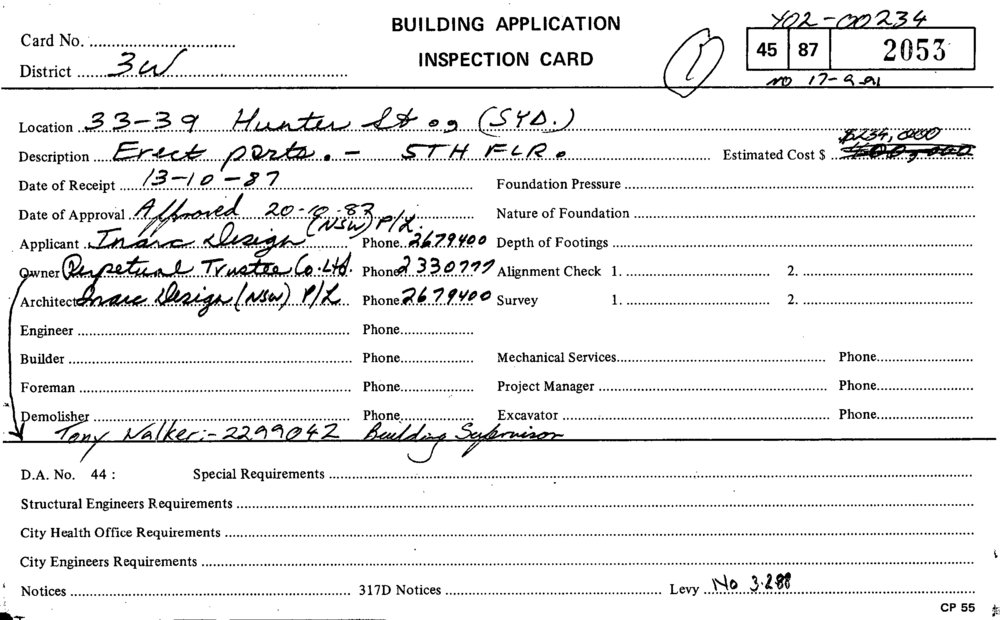 BUILDING APPLICATION
INSPECTION CARD
Y02-00234
Card No.
45 87 2053
District 3W
NO 17-9-91
1
Location 33-39 Hunter St og (SYD.)
$234,000
Description Erect parts. - 5TH FLR. Estimated Cost $
Date of Receipt 13-10-87 Foundation Pressure
Date of Approval Approved 20-10-87 Nature of Foundation
Applicant Inarc Design (NSW) P/L. Phone 2679400 Depth of Footings
Owner Perpetual Trustee Co. Ltd. Phone 2330777 Alignment Check 1. 2.
Architect Inarc Design (NSW) P/L Phone 2679400 Survey 1. 2.
Engineer Phone
Builder Phone Mechanical Services Phone
Foreman Phone Project Manager Phone
Demolisher Phone Excavator Phone
Tony Walker:- 2299042 Building Supervisor
D.A. No. 44 : Special Requirements
Structural Engineers Requirements
City Health Office Requirements
City Engineers Requirements
Notices 317D Notices Levy No 3.2.88
CP 55